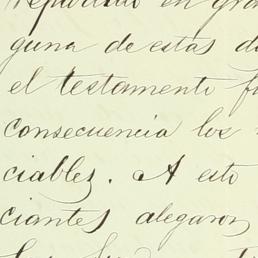 en
guna de estas
el testamento
consecuencia los
ciables. A esto
ciantes alegaron